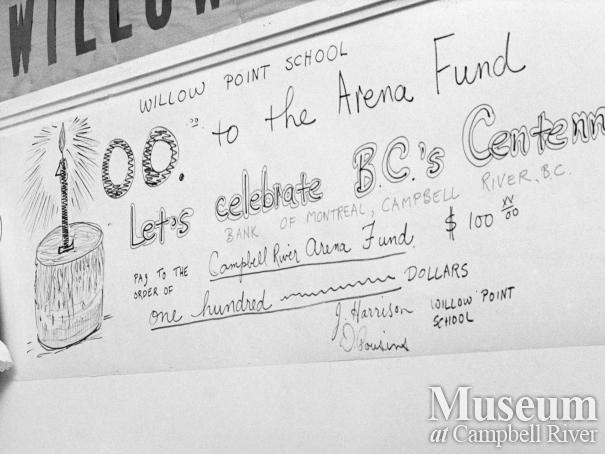 WILLOW
WILLOW POINT SCHOOL
00.00 to the Arena Fund
Let's celebrate B.C.'s Centenn
BANK OF MONTREAL, CAMPBELL RIVER, B.C.
PAY TO THE ORDER OF Campbell River Arena Fund. $ 100 XX/00
one hundred DOLLARS
J. Harrison WILLOW POINT SCHOOL
Museum
at Campbell River